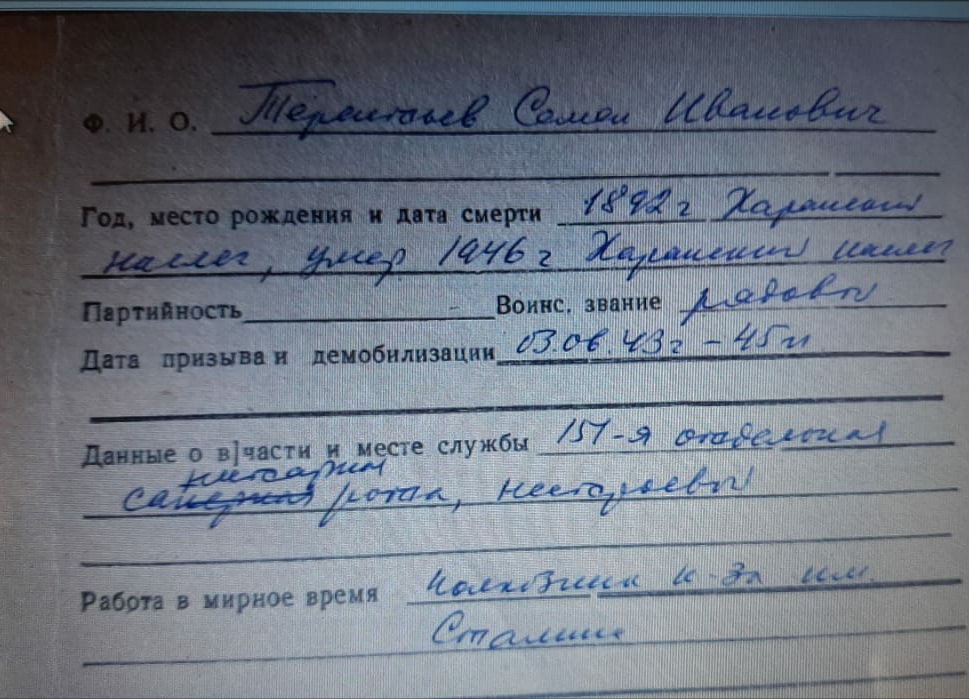 Ф. И. О. Терентьев Семен Иванович
Год, место рождения и дата смерти 1892 г Харанский
наслег, умер 1946 г Харанский наслег
Партийность - Воинс. звание рядовой
Дата призыва и демобилизации 03.06.43 г - 45 гг
Данные о в]части и месте службы 151-я отдельная
санитарн
рота,
Работа в мирное время колхозник к-за им.
Сталина